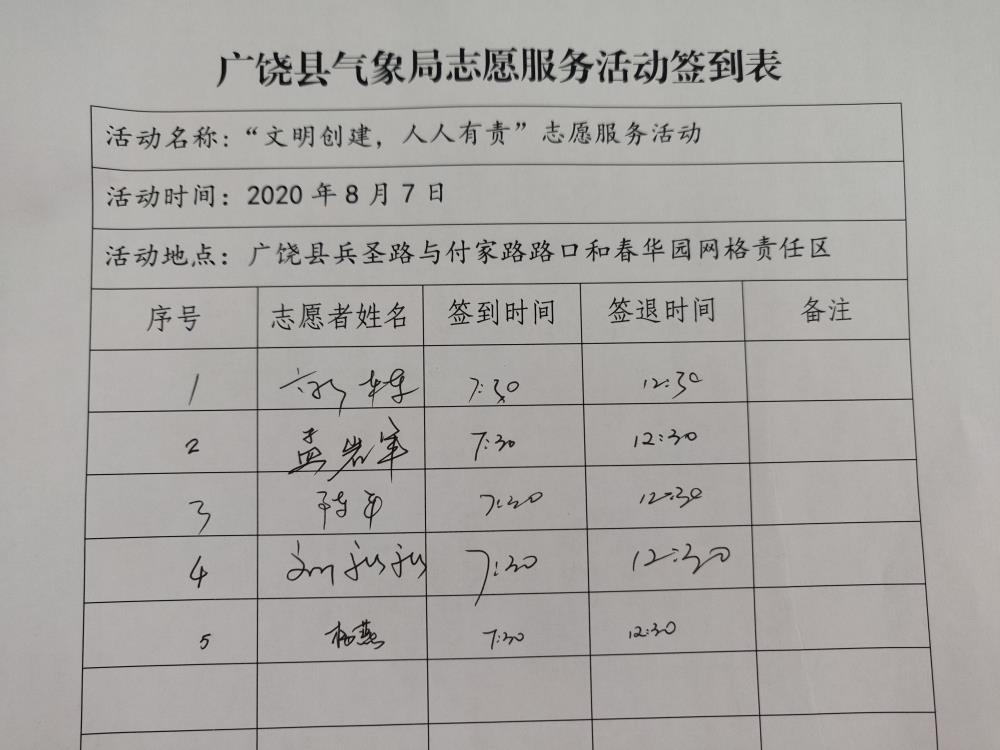 广饶县气象局志愿服务活动签到表
活动名称：“文明创建，人人有责”志愿服务活动
活动时间：2020 年 8 月 7 日
活动地点：广饶县兵圣路与付家路路口和春华园网格责任区
序号 志愿者姓名 签到时间 签退时间 备注
1 7:30 12:30
2 孟岩军 7:30 12:30
3 7:30 12:30
4 刘 7:30 12:30
5 杨燕 7:30 12:30